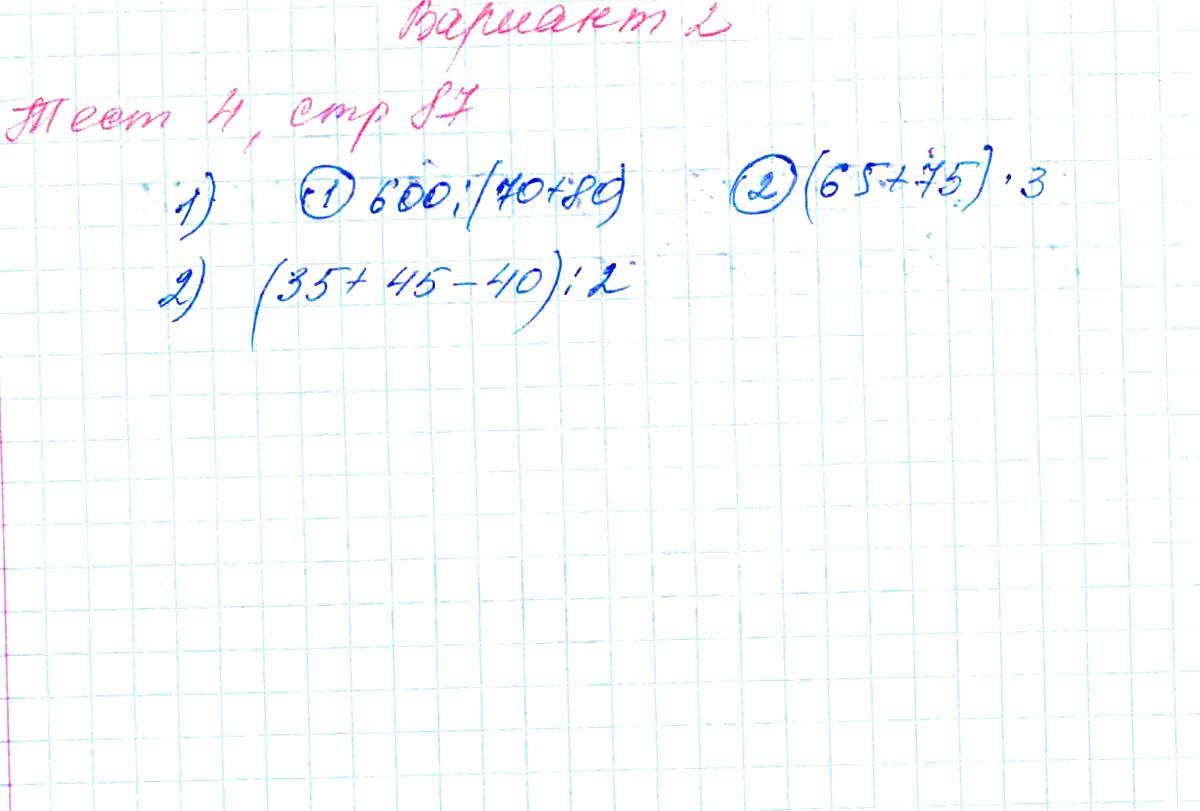 Вариант 2
Тест 4, стр 87
1) ① 600:(70+80) ② (65+75)·3
2) (35+45-40):2